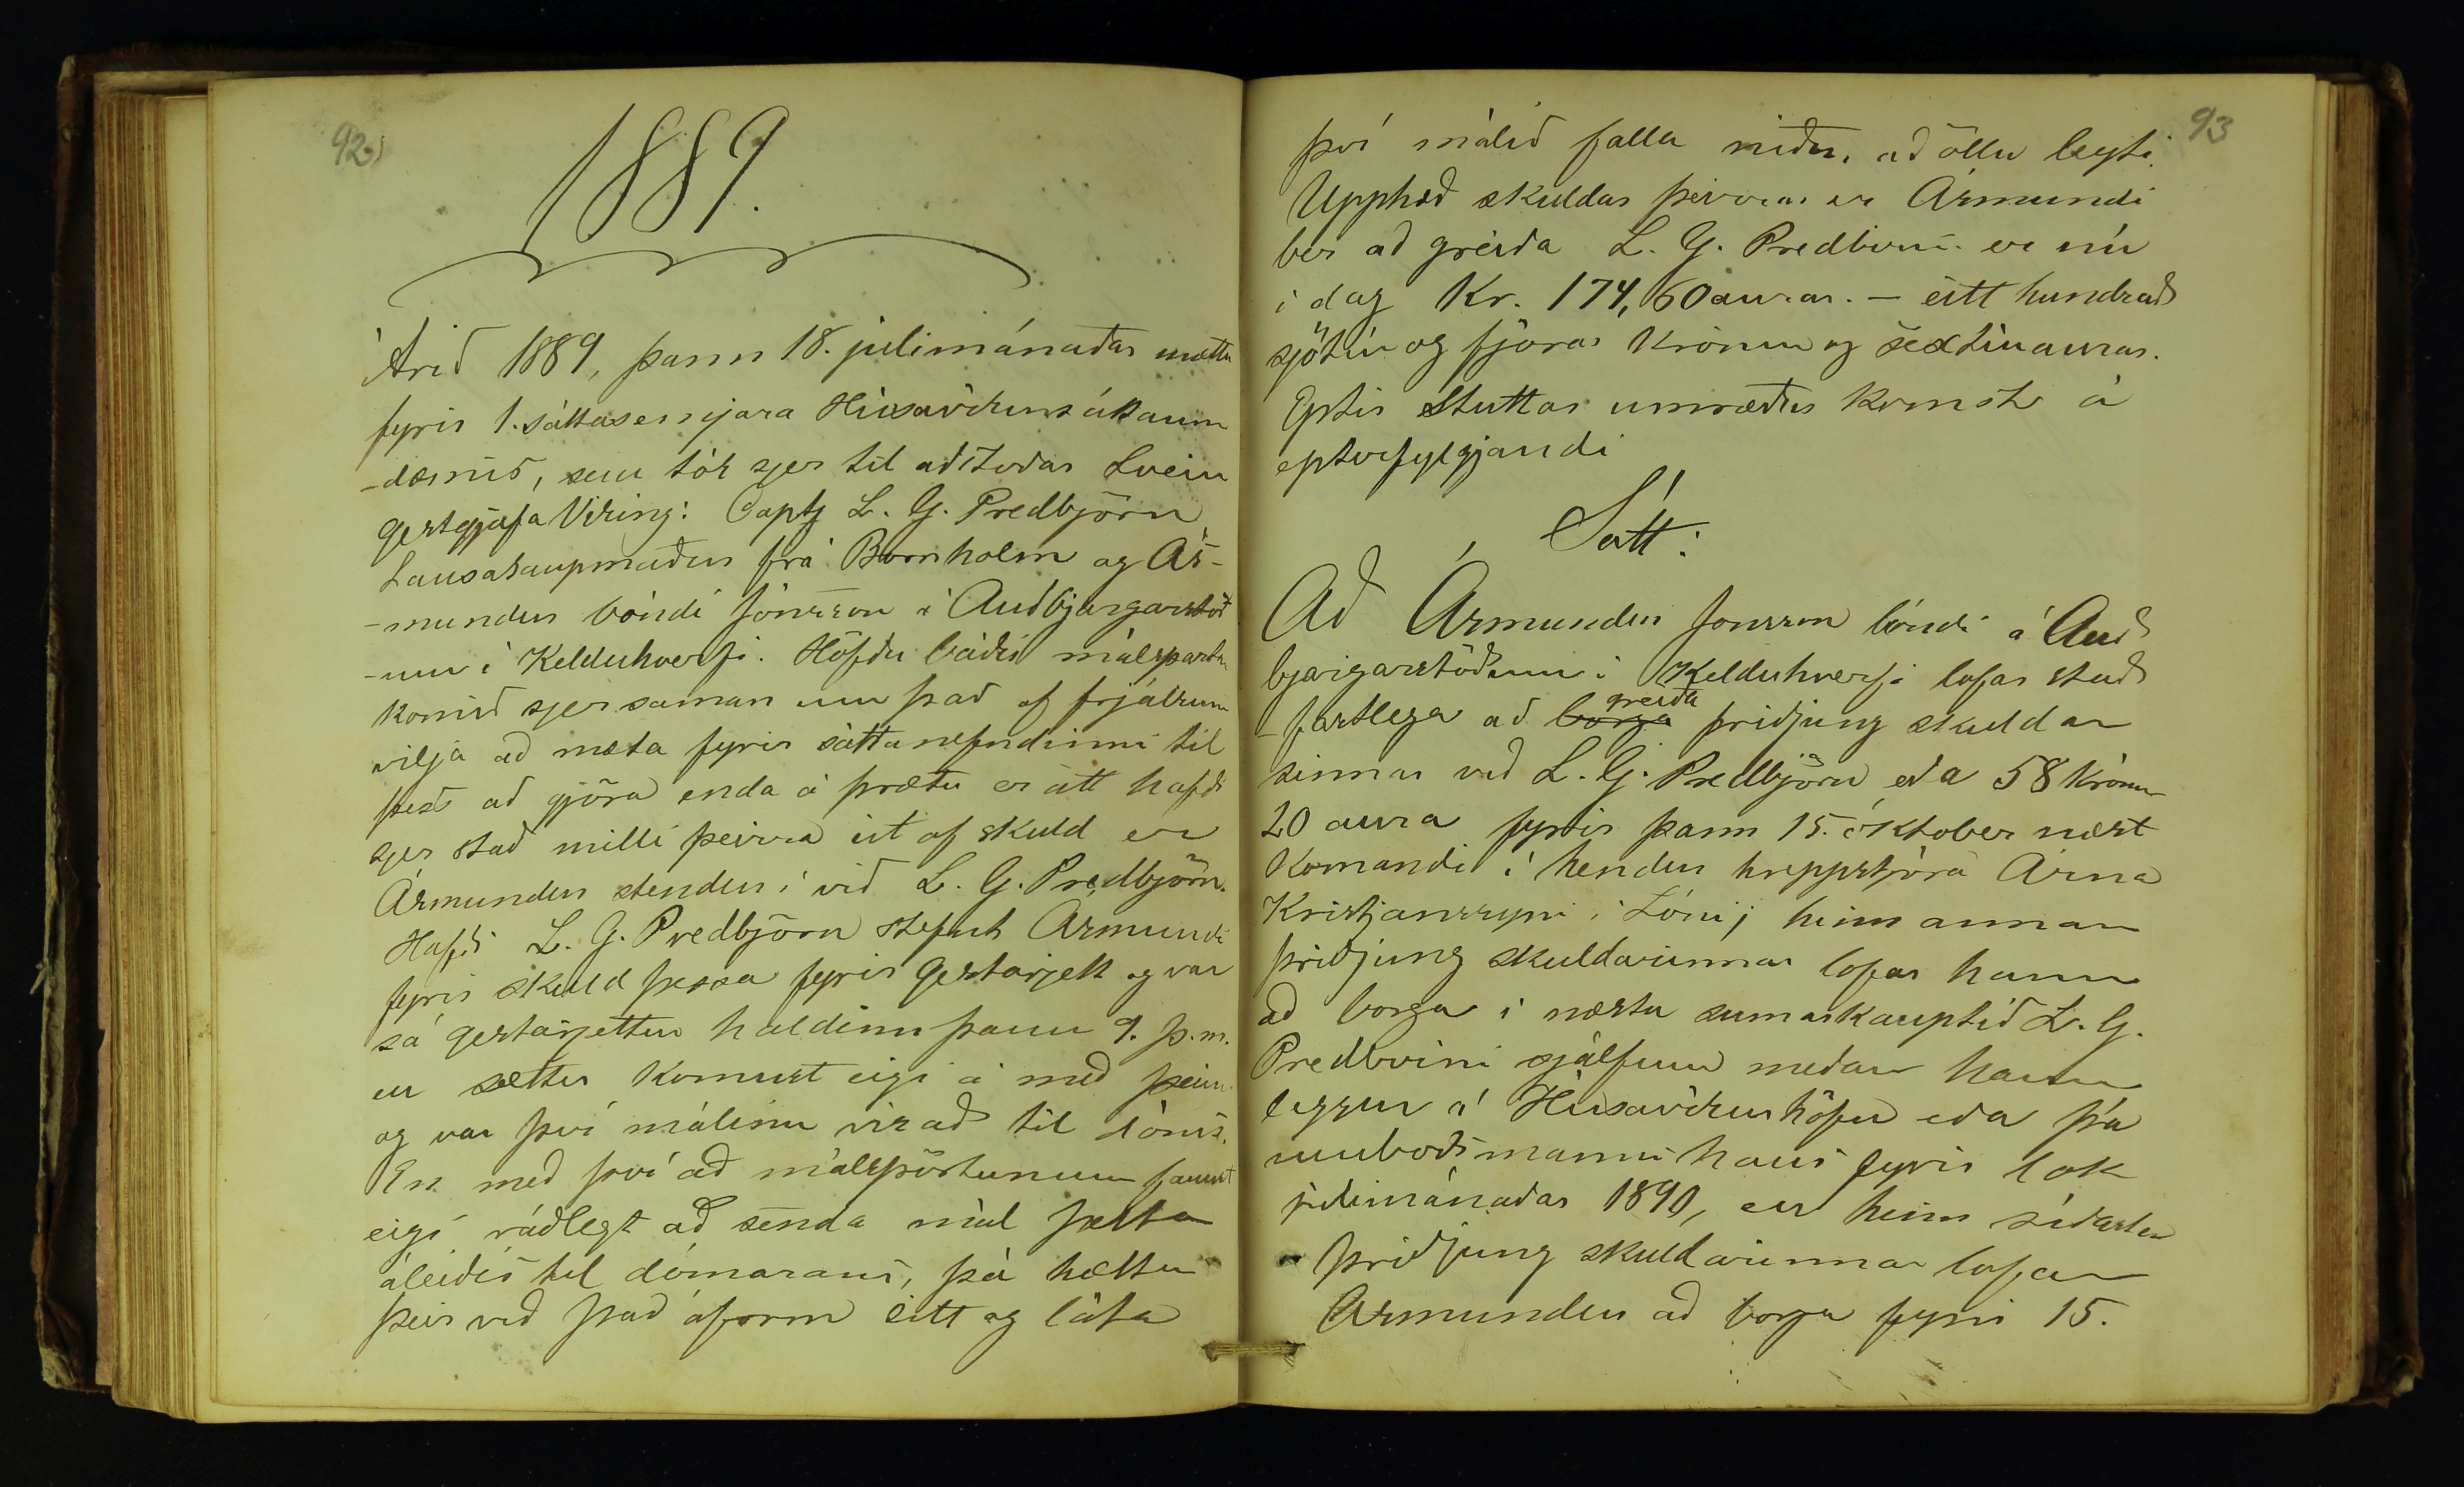 92.
1889.
Árið 1889, þann 18. júlimánaðar mættu
fyrir 1. sáttasemjara Húsavíkursáttaum
-dæmis, sem tók sjer til aðstoðar Svein
gestgjafa Víking: Capt L. G. Predbjörn
Lausakaupmaður frá Bornholm og Ás-
-mundur bóndi Jónsson á Auðbjargarstöð
-um í Kelduhverfi. Höfðu báðir málspartar
komið sjer saman um það af frjálsum
vilja að mæta fyrir sáttanefndinni til
þess að gjöra enda á þrætu er átt hafði
sjer stað milli þeirra út af skuld er
Ásmundur stendur í við L. G. Predbjörn.
Hafði L. G. Predbjörn stefnt Ásmundi
fyrir skuld þessa fyrir gestarjett og var
sá gestarjettur haldinn þann 9. þ.m.
en sættir komust eigi á með þeim
og var því málinu vísað til dóms.
En með því að málspörtunum fannst
eigi ráðlegt að senda mál þetta
áleiðis til dómarans, þá hættu
þeir við það áform sitt og láta
93
því málið falla niður að öllu leyti.
Upphæð skuldar þeirrar er Ásmundi
ber að greiða L. G. Predbirni er nú
í dag Kr. 174,60 aurar. - eitt hundrað
sjötíu og fjórar krónur og sextíu aurar.
Eptir stuttar umræður komst á
eptirfylgjandi
Sátt:
Að Ásmundur Jónsson bóndi á Auð
bjargarstöðum í Kelduhverfi lofar stað
-fastlega að borga greiða þriðjung skuldar
sinnar við L. G. Predbjörn eða 58 krónur
20 aura fyrir þann 15. óktober næst
komandi í hendur hreppstjóra Árna
Kristjánssyni í Lóni; hinn annan
þriðjung skuldarinnar lofar hann
að borga í næstu sumarkauptíð L. G.
Predbirni sjálfum meðan hann
liggur á Húsavíkurhöfn eða þá
umboðsmanni hans fyrir lok
júlimánaðar 1890, en hinn síðasta
þriðjung skuldarinnar lofar
Ásmundur að borga fyrir 15.